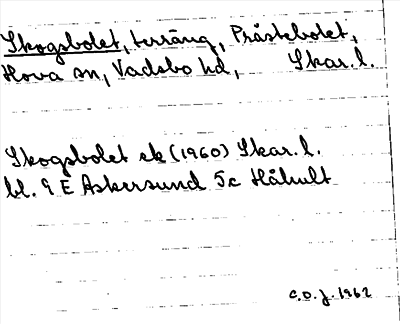 Skogsbolet, terräng, Prästebolet,
Hova sn, Vadsbo hd, Skar. l.
Skogsbolet ek (1960) Skar. l.
bl. 9 E Askersund 5c Håhult
C.O.J. 1962